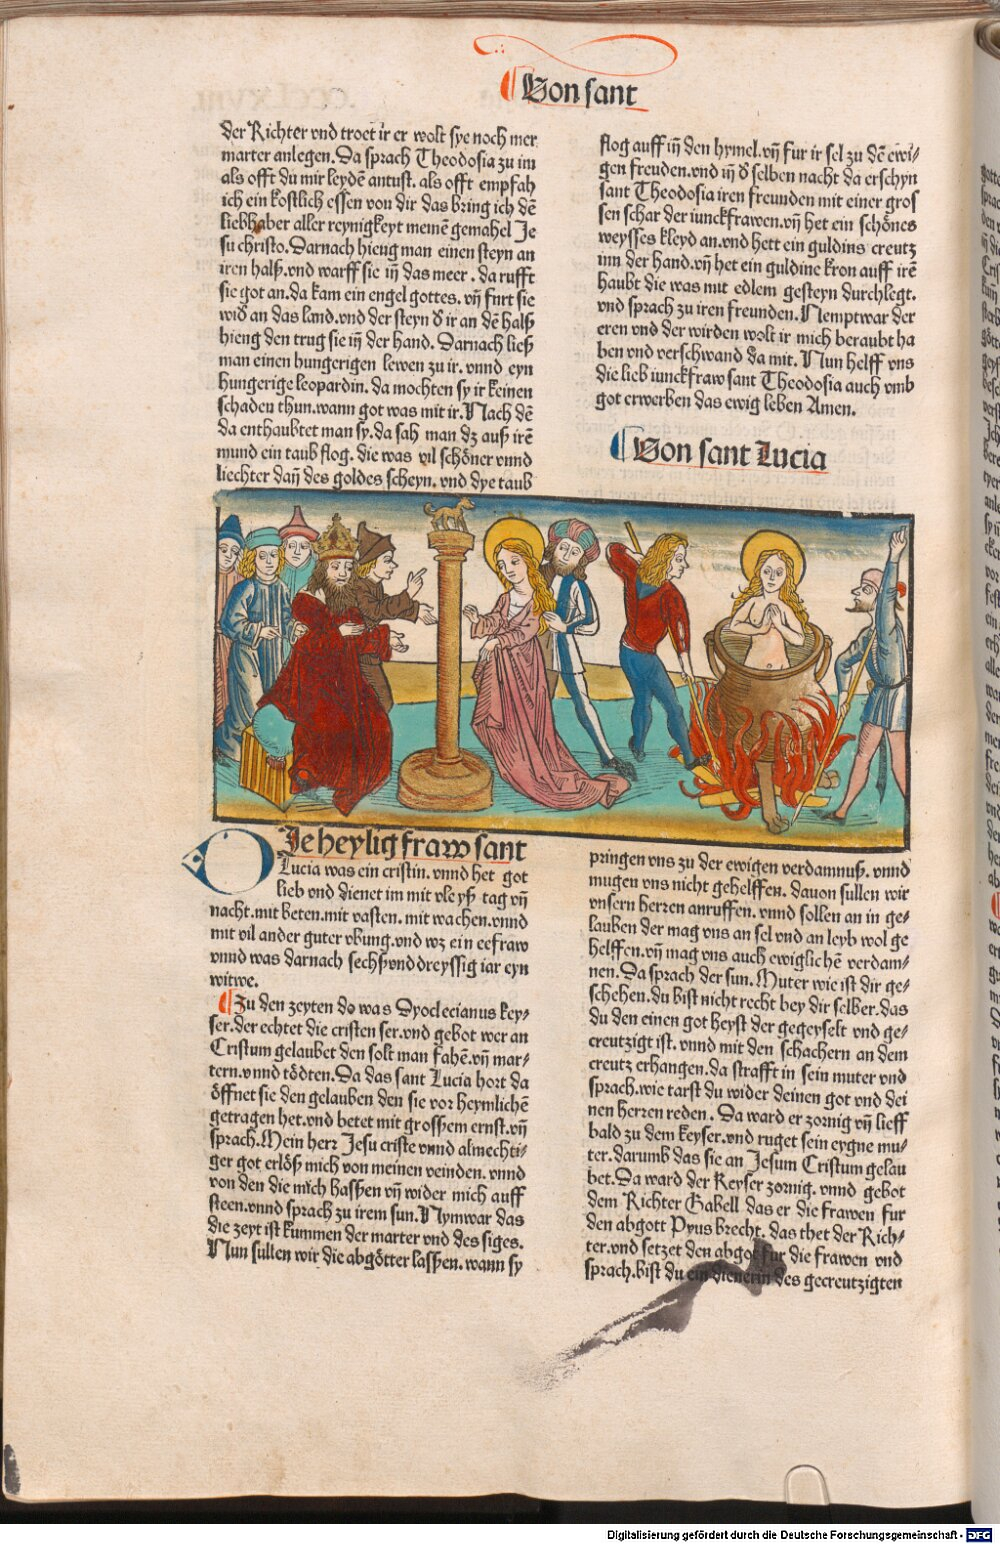 Von sant
der Richter vnd troet ir er wolt sye noch mer
marter anlegen. Da sprach Theodosia zu im
als offt du mir leydē antust. als offt empfah
ich ein kostlich essen von dir das bring ich dē
liebhaber aller reynigkeyt meinē gemahel Je
su christo. Darnach hieng man einen steyn an
iren halß. vnd warff sie iñ das meer. da rufft
sie got an. da kam ein engel gottes. vñ furt sie
wið an das land. vnd der steyn ð ir an dē halß
hieng den trug sie iñ der hand. Darnach ließ
man einen hungerigen lewen zu ir. vnnd eyn
hungerige leopardin. da mochten sy ir keinen
schaden thun. wann got was mit ir. Nach dē
da enthaubtet man sy. da sah man dz auß irē
mund ein taub flog. die was vil schöner vnnd
liechter dañ des goldes scheyn. vnd dye taub
flog auff iñ den hymel. vñ fur ir sel zu dē ewi-
gen freuden. vnd iñ ð selben nacht da erschyn
sant Theodosia iren freunden mit einer gros
sen schar der iunckfrawen. vñ het ein schönes
weysses kleyd an. vnd hett ein guldins creutz
inn der hand. vñ het ein guldine kron auff irē
haubt die was mit edlem gesteyn durchlegt.
vnd sprach zu iren freunden. Nemptwar der
eren vnd der wirden wolt ir mich beraubt ha
ben vnd verschwand da mit. Nun helff vns
die lieb iunckfraw sant Theodosia auch vmb
got erwerben das ewig leben Amen.
Von sant Lucia
DIe heylig fraw sant
Lucia was ein cristin. vnnd het got
lieb vnd dienet im mit vleyß tag vñ
nacht. mit beten. mit vasten. mit wachen. vnnd
mit vil ander guter vbung. vnd wz ein eefraw
vnnd was darnach sechß vnd dreyssig iar eyn
witwe.
Zu den zeyten do was Dyoclecianus key-
ser. der echtet die cristen ser. vnd gebot wer an
Cristum gelaubet den solt man fahē. vñ mar-
tern. vnnd tödten. Da das sant Lucia hort da
öffnet sie den gelauben den sie vor heymlichē
getragen het. vnd betet mit grossem ernst. vñ
sprach. Mein herr Jesu criste vnnd almechti-
ger got erlöß mich von meinen veinden. vnnd
von den die mich hassen vñ wider mich auff
steen. vnnd sprach zu irem sun. Nymwar das
die zeyt ist kummen der marter vnd des siges.
Nun sullen wir die abgötter lassen. wann sy
pringen vns zu der ewigen verdamnuß. vnnd
mugen vns nicht gehelffen. dauon sullen wir
vnsern herren anruffen. vnnd sollen an in ge-
lauben der mag vns an sel vnd an leyb wol ge
helffen. vñ mag vns auch ewiglichē verdam-
nen. Da sprach der sun. Muter wie ist dir ge-
schehen. du bist nicht recht bey dir selber. das
du den einen got heyst der gegeyselt vnd ge-
creutzigt ist. vnnd mit den schachern an dem
creutz erhangen. da strafft in sein muter vnd
sprach. wie tarst du wider deinen got vnd dei
nen herren reden. Da ward er zornig vñ lieff
bald zu dem keyser. vnd ruget sein eygne mu-
ter. darumb das sie an Jesum Cristum gelau
bet. Da ward der Keyser zornig. vnnd gebot
dem Richter Gabell das er die frawen fur
den abgott Pyus brecht. das thet der Rich-
ter. vnd setzet den abgot fur die frawen vnd
sprach. bist du ein dienerin des gecreutzigten
Digitalisierung gefördert durch die Deutsche Forschungsgemeinschaft - DFG